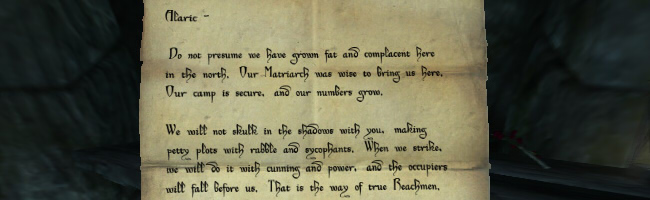 Alaric -
Do not presume we have grown fat and complacent here
in the north. Our Matriarch was wise to bring us here.
Our camp is secure, and our numbers grow.
We will not skulk in the shadows with you, making
petty plots with rabble and sycophants. When we strike,
we will do it with cunning and power, and the occupiers
will fall before us. That is the way of true Reachmen.